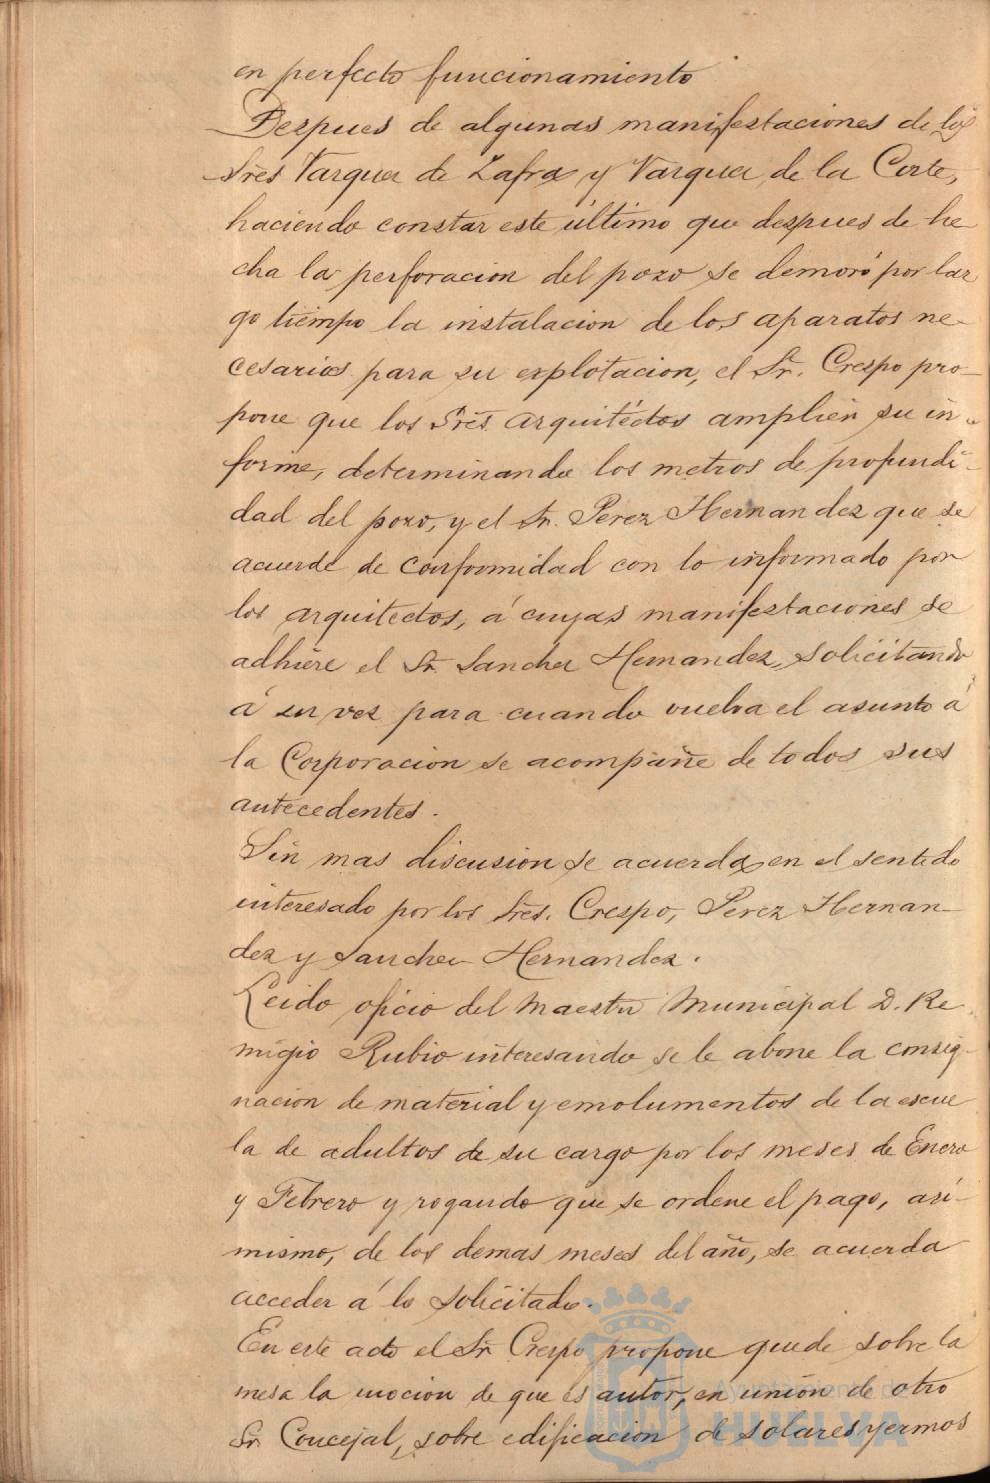 en perfecto funcionamiento
Despues de algunas manifestaciones de los
Sres Vazquez de Zafra y Vazquez de la Corte,
haciendo constar este último que despues de he
cha la perforacion del pozo se demoró por lar
go tiempo la instalacion de los aparatos ne-
cesarios para su explotacion, el Sr. Crespo pro-
pone que los Sres arquitectos amplien su in-
forme, determinando los metros de profundi-
dad del pozo, y el Sr. Perez Hernandez que se
acuerde de conformidad con lo informado por
los arquitectos, á cuyas manifestaciones se
adhiere el Sr. Sanchez Hernandez, solicitando
á su vez para cuando vuelva el asunto á
la Corporacion se acompañe de todos sus
antecedentes.
Sin mas discusion se acuerda en el sentido
interesado por los Sres. Crespo, Perez Hernan-
dez y Sanchez Hernandez.
Leido oficio del Maestro Municipal D. Re-
migio Rubio interesando se le abone la consig-
nacion de material y emolumentos de la escue
la de adultos de su cargo por los meses de Enero
y Febrero y rogando que se ordene el pago, así-
mismo, de los demas meses del año, se acuerda
acceder á lo solicitado.
En este acto el Sr. Crespo propone quede sobre la
mesa la mocion de que es autor, en unión de otro
Sr. Concejal, sobre edificacion de solares yermos
Ayuntamiento de
HUELVA